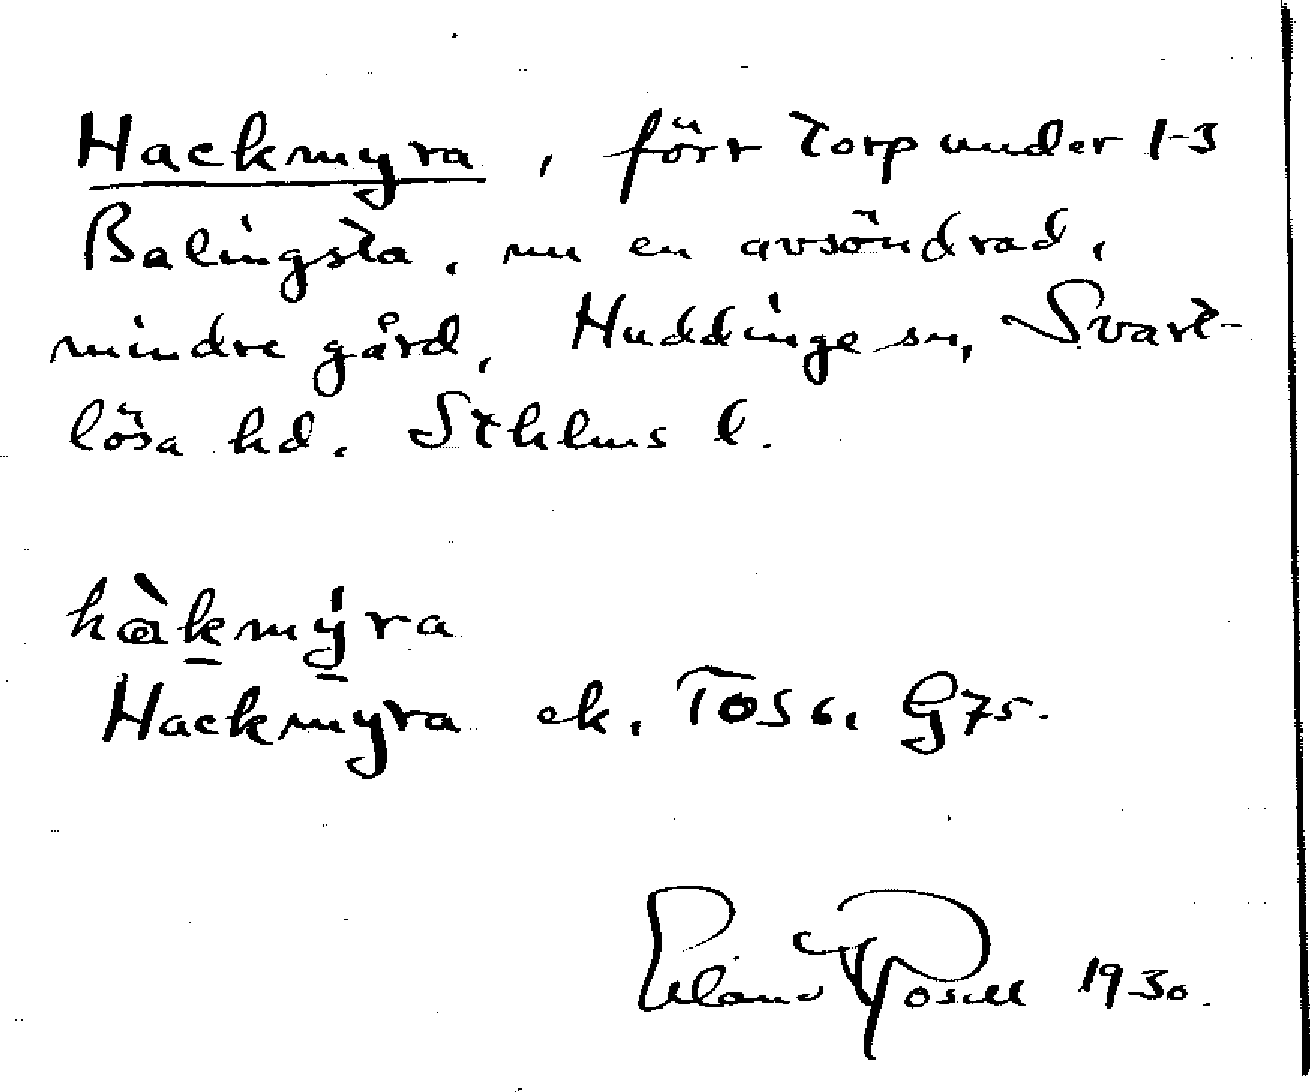 Hackmyra, förr torp under 1-3
Balingsta, nu en avsöndrad,
mindre gård, Huddinge sn, Svart-
lösa hd. Sthlms l.
hàkmýra
Hackmyra ek. G75.
Erland Rosell 1930.